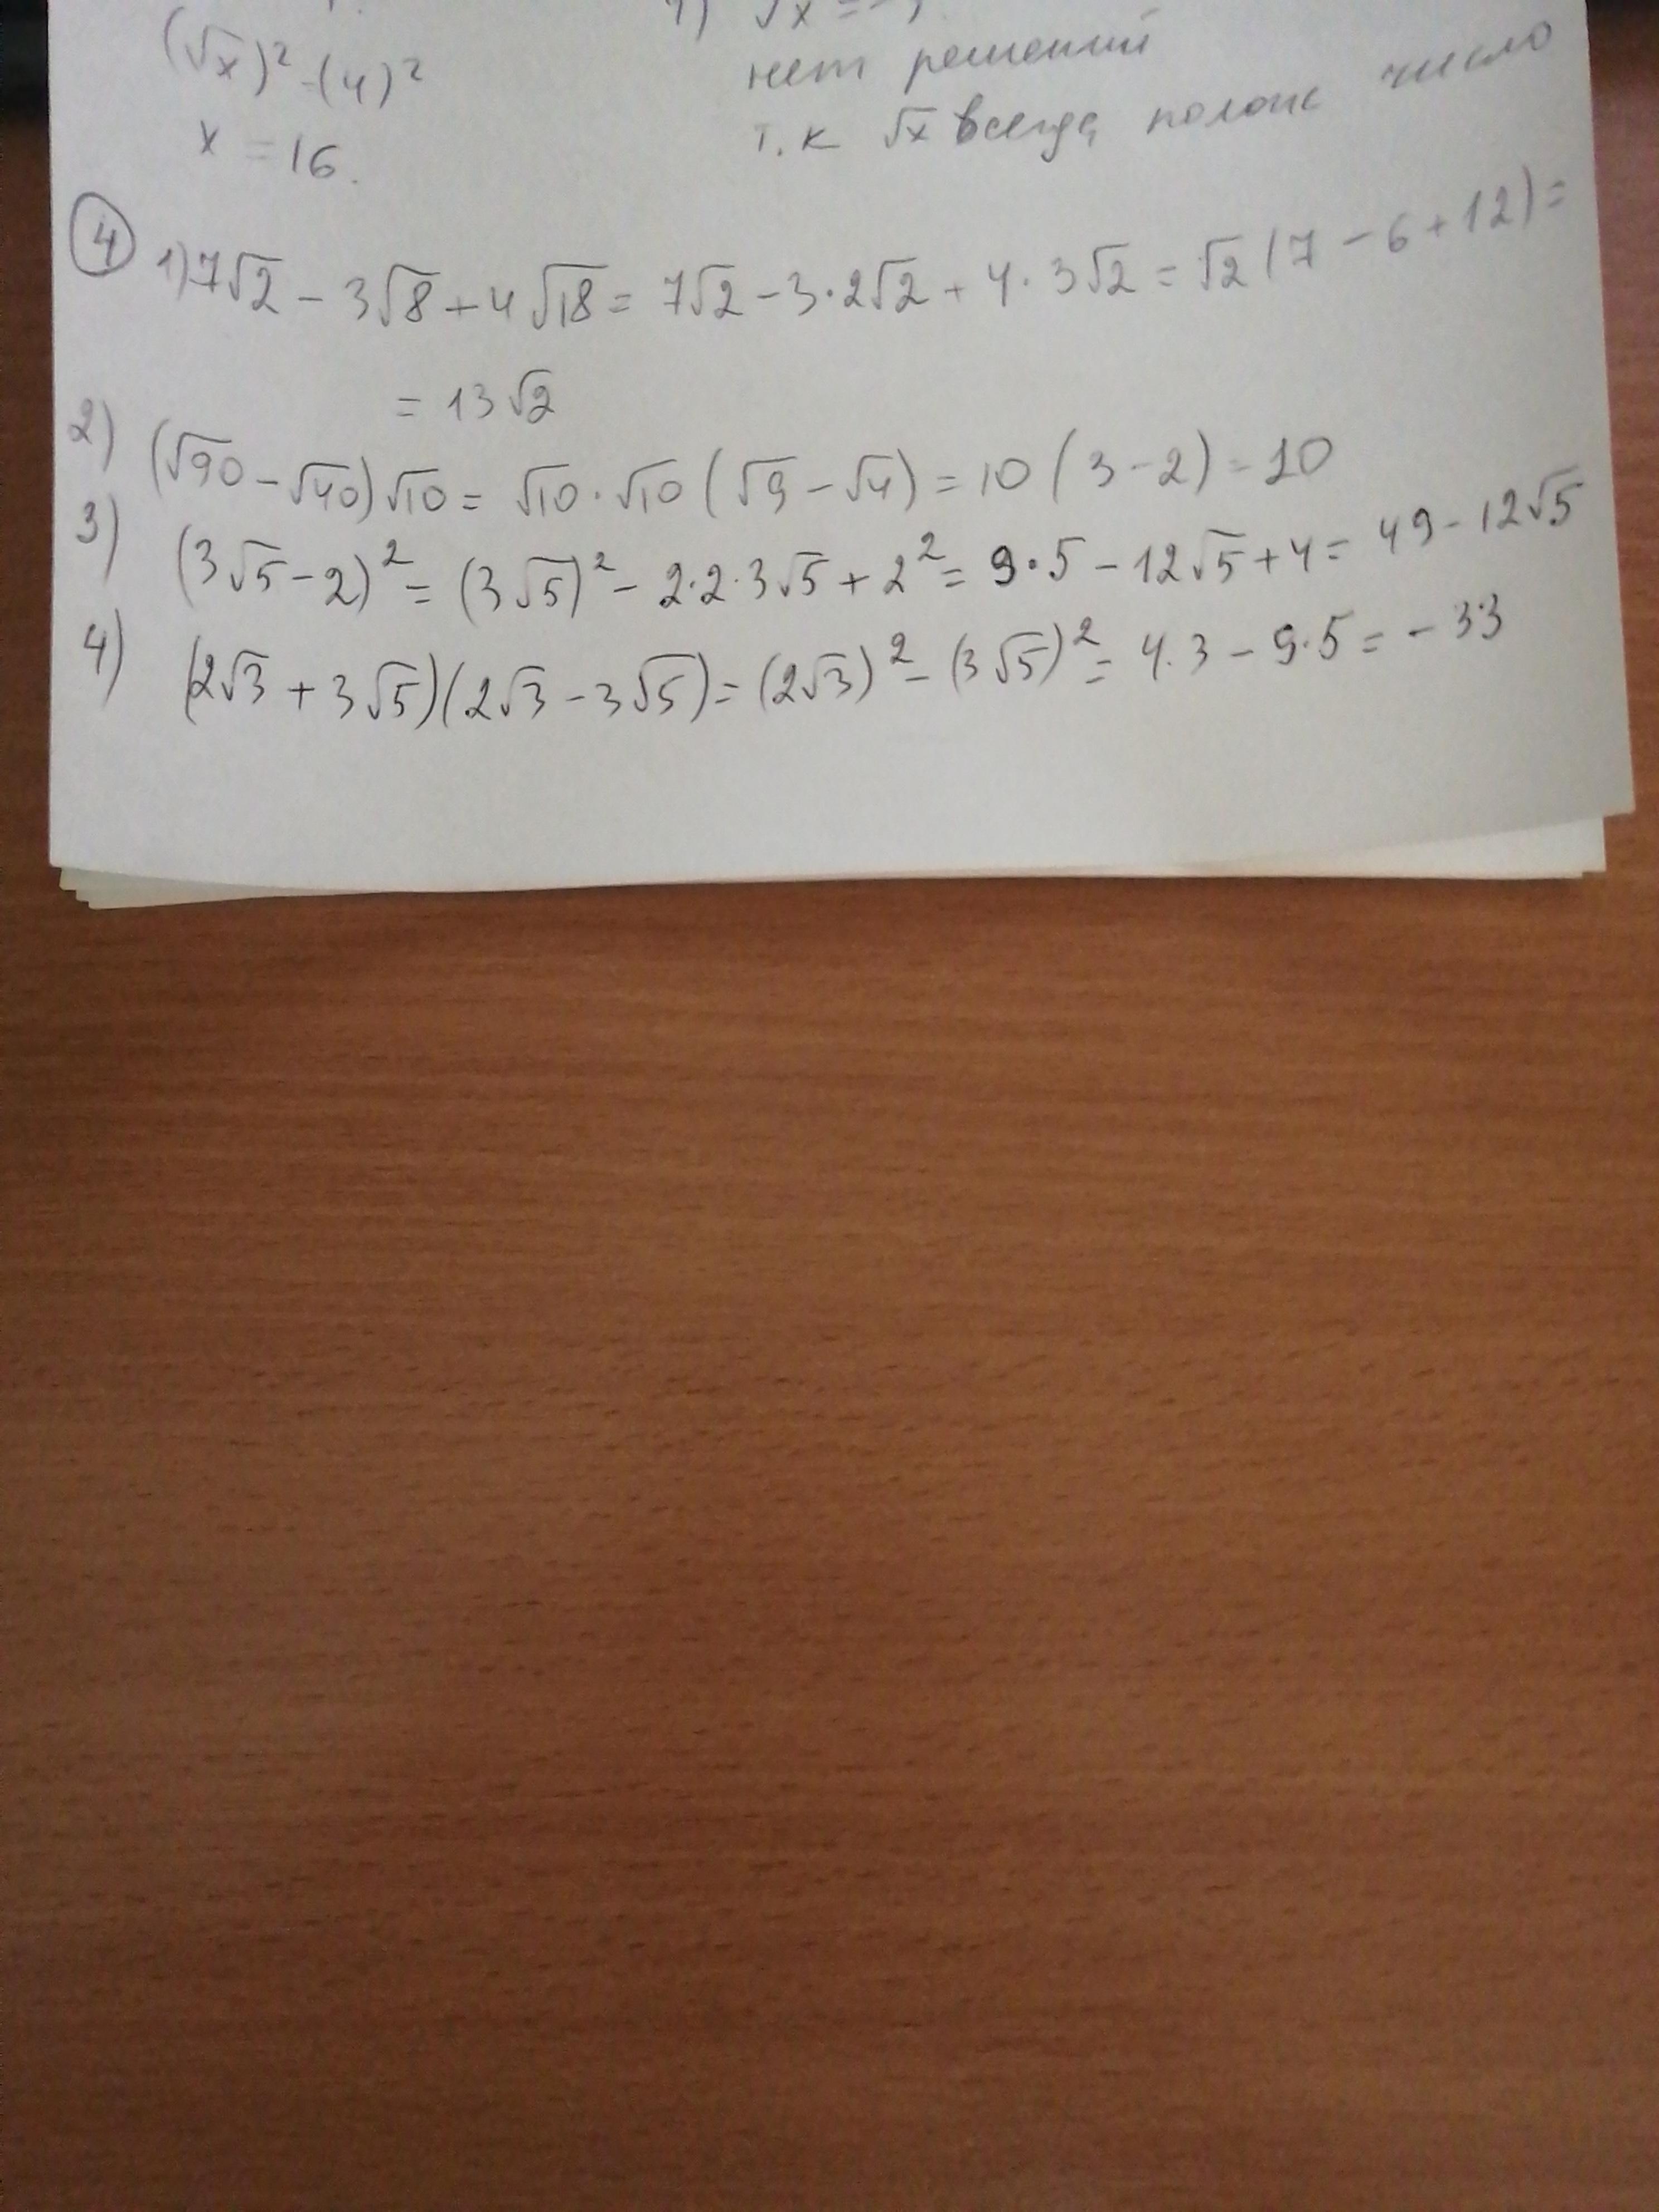 (√x)² = (4)²
x = 16.
4) √x = -
нет решений
т.к √x всегда полож число
④ 1) 7√2 - 3√8 + 4√18 = 7√2 - 3·2√2 + 4·3√2 = √2 (7 - 6 + 12) =
= 13√2
2) (√90 - √40)√10 = √10·√10 (√9 - √4) = 10 (3 - 2) = 10
3) (3√5 - 2)² = (3√5)² - 2·2·3√5 + 2² = 9·5 - 12√5 + 4 = 49 - 12√5
4) (2√3 + 3√5)(2√3 - 3√5) = (2√3)² - (3√5)² = 4·3 - 9·5 = -33